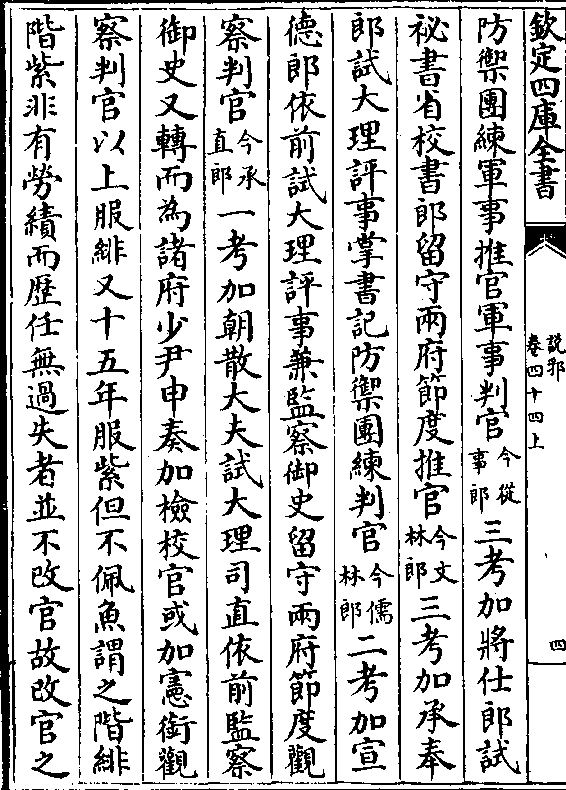 欽定四庫全書
說郛
卷四十四上
四
防禦團練軍事推官軍事判官今從事郎三考加將仕郎試
祕書省校書郎留守兩府節度推官今文林郎三考加承奉
郎試大理評事掌書記防禦團練判官今儒林郎二考加宣
德郎依前試大理評事兼監察御史留守兩府節度觀
察判官今承直郎一考加朝散大夫試大理司直依前監察
御史又轉而為諸府少尹申奏加檢校官或加憲銜觀
察判官以上服緋又十五年服紫但不佩魚謂之階緋
階紫非有勞績而歴任無過失者並不改官故改官之